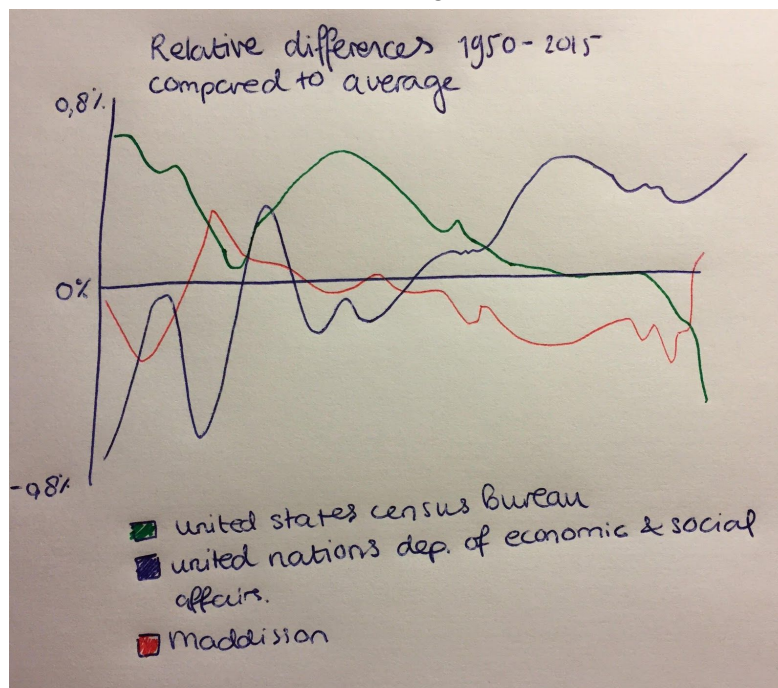 Relative differences 1950-2015
compared to average
0,8%
0%
-0,8%
united states census Bureau
united nations dep. of economic & social
affairs.
Maddisson